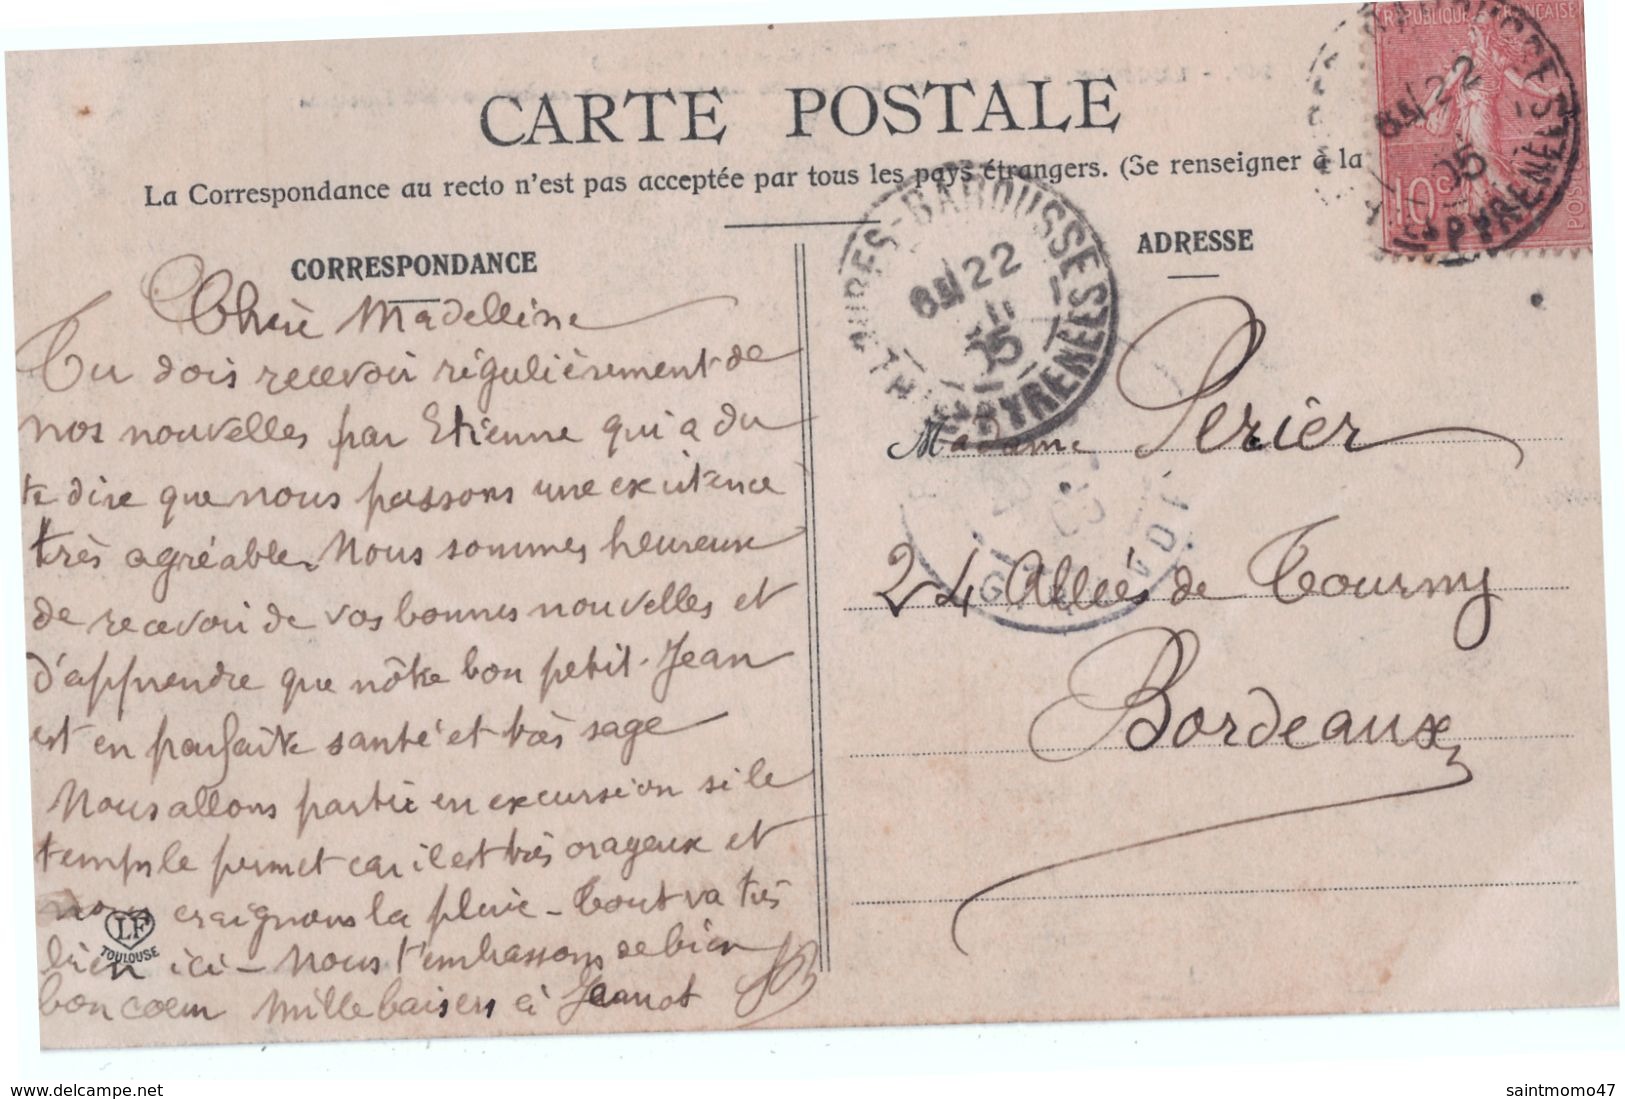 CARTE POSTALE
La Correspondance au recto n'est pas acceptée par tous les pays étrangers. (Se renseigner à la
CORRESPONDANCE
Chère Madelleine
Tu dois recevoir régulièrement de
nos nouvelles par Etienne qui a du
te dire que nous passons une existence
très agréable. Nous sommes heureux
de recevoir de vos bonnes nouvelles et
d'apprendre que nôtre bon petit Jean
est en parfaite santé et très sage
Nous allons partir en excursion si le
temps le permet car il est très orageux et
nous craignons la pluie - Tout va très
bien ici - Nous t'embrassons de bien
bon coeur Mille baisers à Jeanot
LF
TOULOUSE
ADRESSE
Madame Perier
24 Allées de Tourny
Bordeaux
REPUBLIQUE FRANÇAISE
10 c
POSTES
BAROUSSE
22
05
PYRENEES
-BAROUSSE
22
05
PYRENEES
delcampe.net
saintmomo47